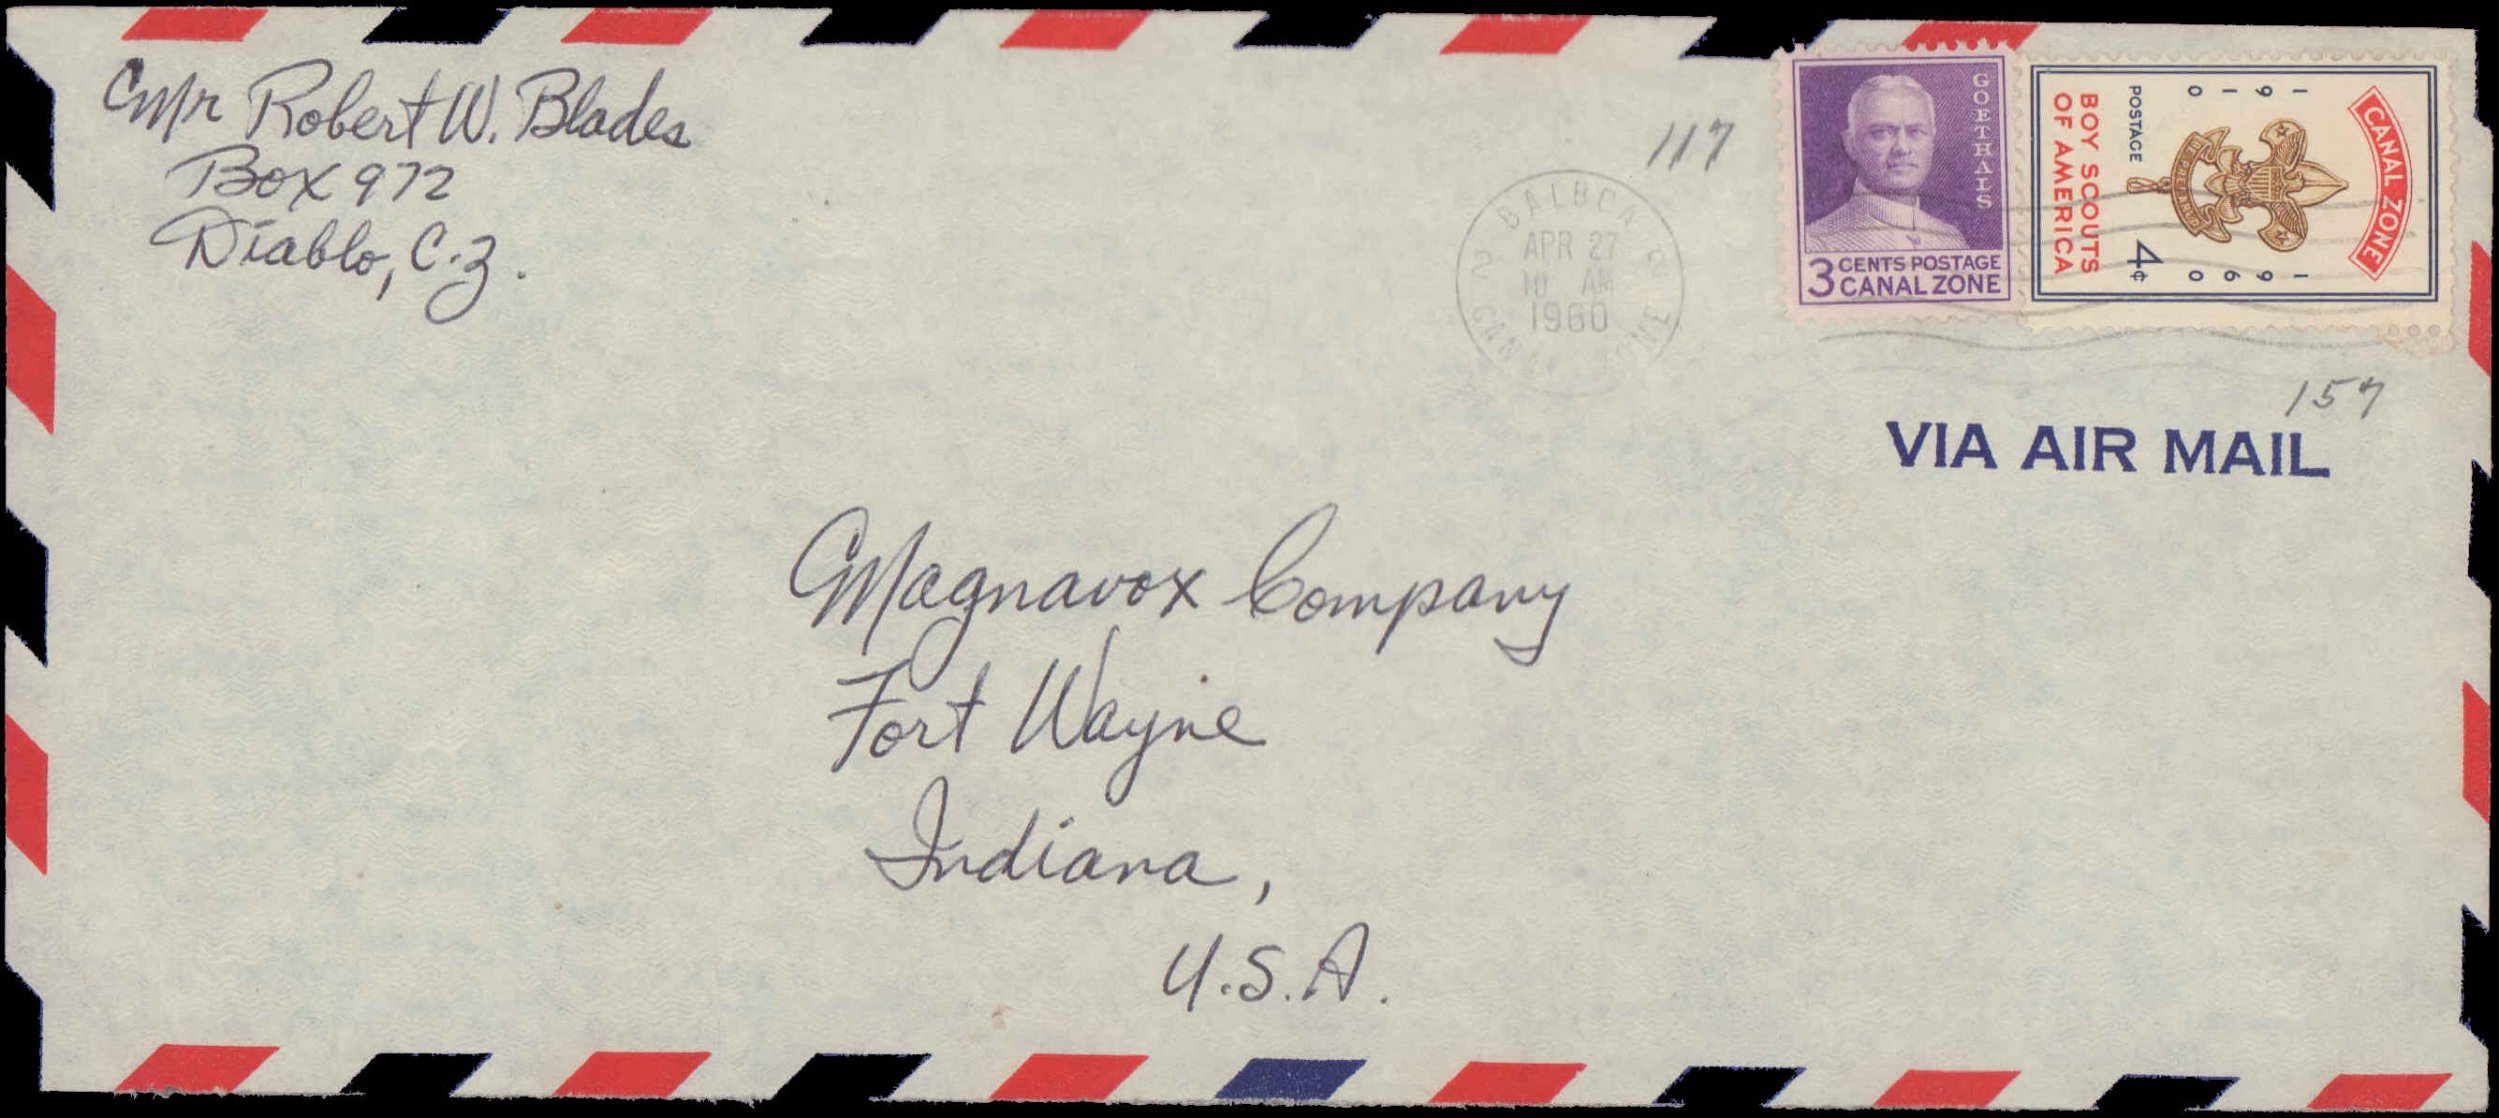 Mr Robert W. Blades
Box 972
Diablo, C.Z.
117
BALBOA
APR 27
10 AM
1960
CANAL ZONE
GOETHALS
3 CENTS POSTAGE
CANAL ZONE
CANAL ZONE
1910
1960
POSTAGE 4¢
BOY SCOUTS
OF AMERICA
157
VIA AIR MAIL
Magnavox Company
Fort Wayne
Indiana,
U.S.A.